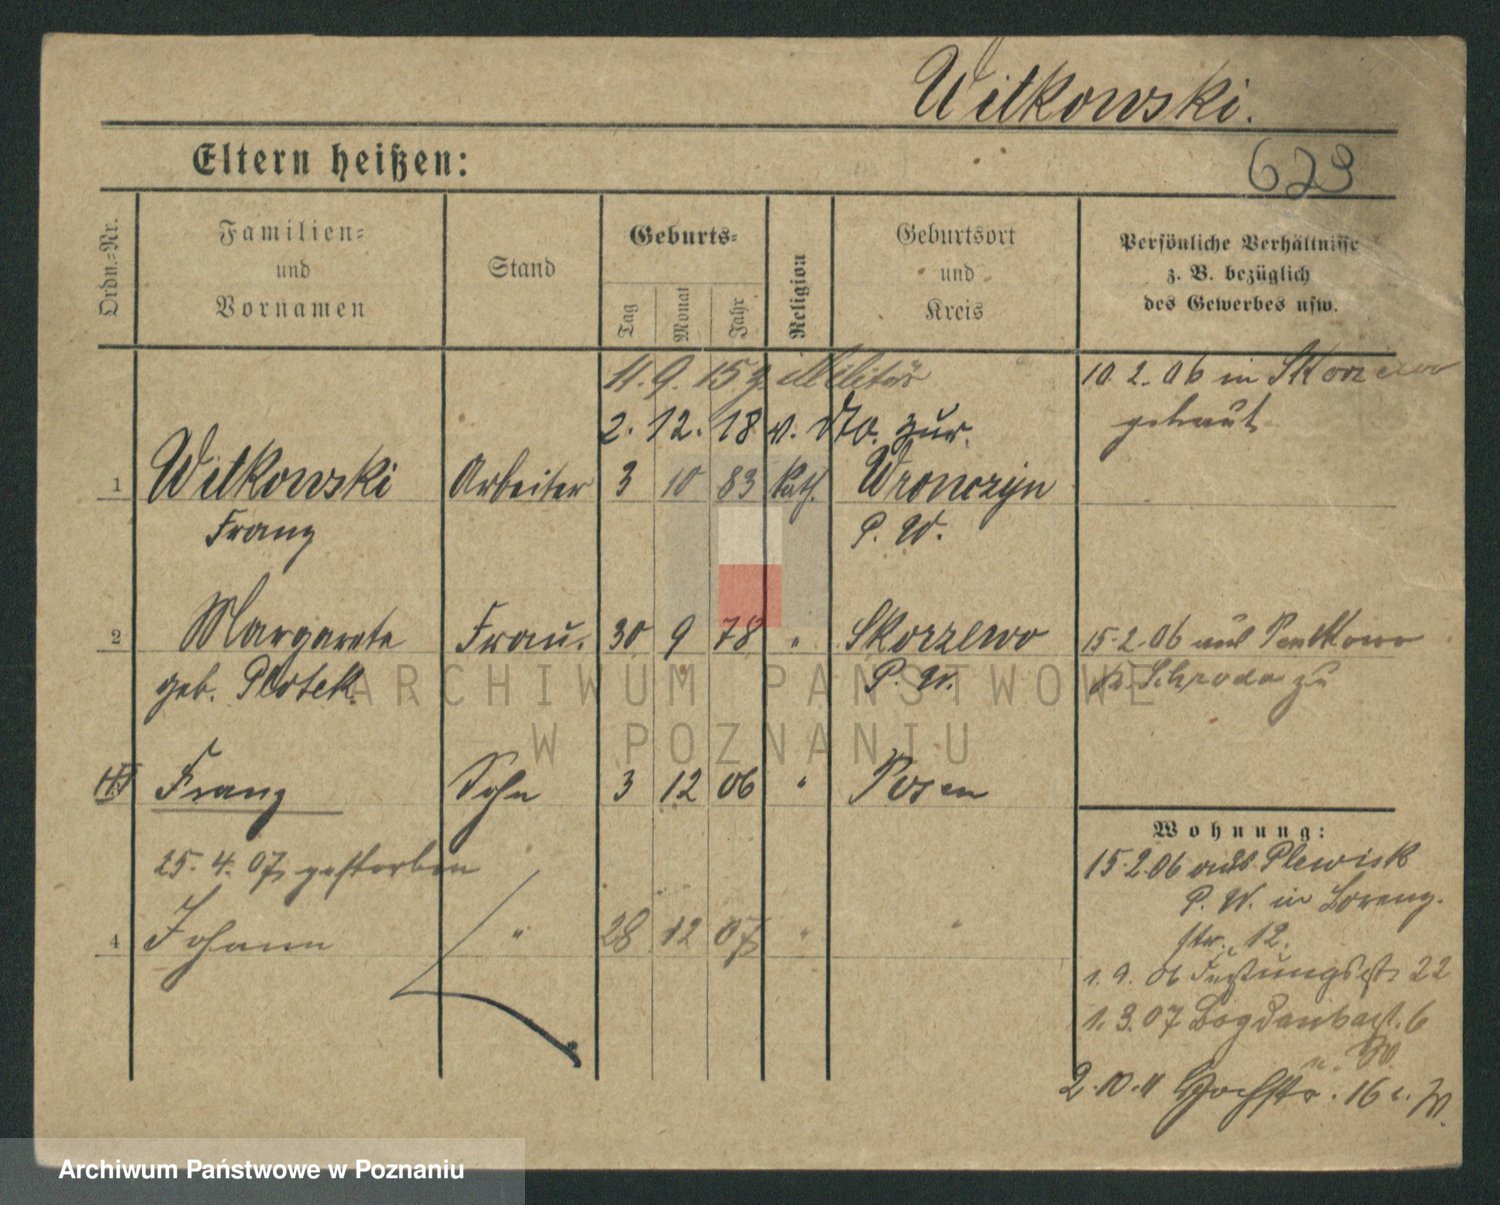 Witkowski.
Eltern heißen:
623
Ordn.-Nr.
Familien-
und
Vornamen
Stand
Geburts-
Tag
Monat
Jahr
Religion
Geburtsort
und
Kreis
Persönliche Verhältnisse
z. B. bezüglich
des Gewerbes usw.
11. 9. 15 z. Militär
10. 2. 06 in Skorzewo
getraut
2. 12. 18 v. dto. zur.
1 Witkowski Arbeiter 3 10 83 kath. Wronczyn
Franz P. W.
2 Margarete Frau. 30 9 78 " Skorzewo
15. 2. 06 aus Pentkowo
geb. Plotek P. W.
Kr. Schroda zu
ARCHIWUM PAŃSTWOWE
W POZNANIU
Franz Sohn 3 12 06 " Posen
25. 4. 07 gestorben
4 Johann " 28 12 07 " "
Wohnung:
15. 2. 06 aus Plewisk
P. W. in Lorenz-
str. 12.
1. 9. 06 Festungsstr. 22
1. 3. 07 Bogdankastr. 6
2. 10. 11 Hochstr. 16
Archiwum Państwowe w Poznaniu